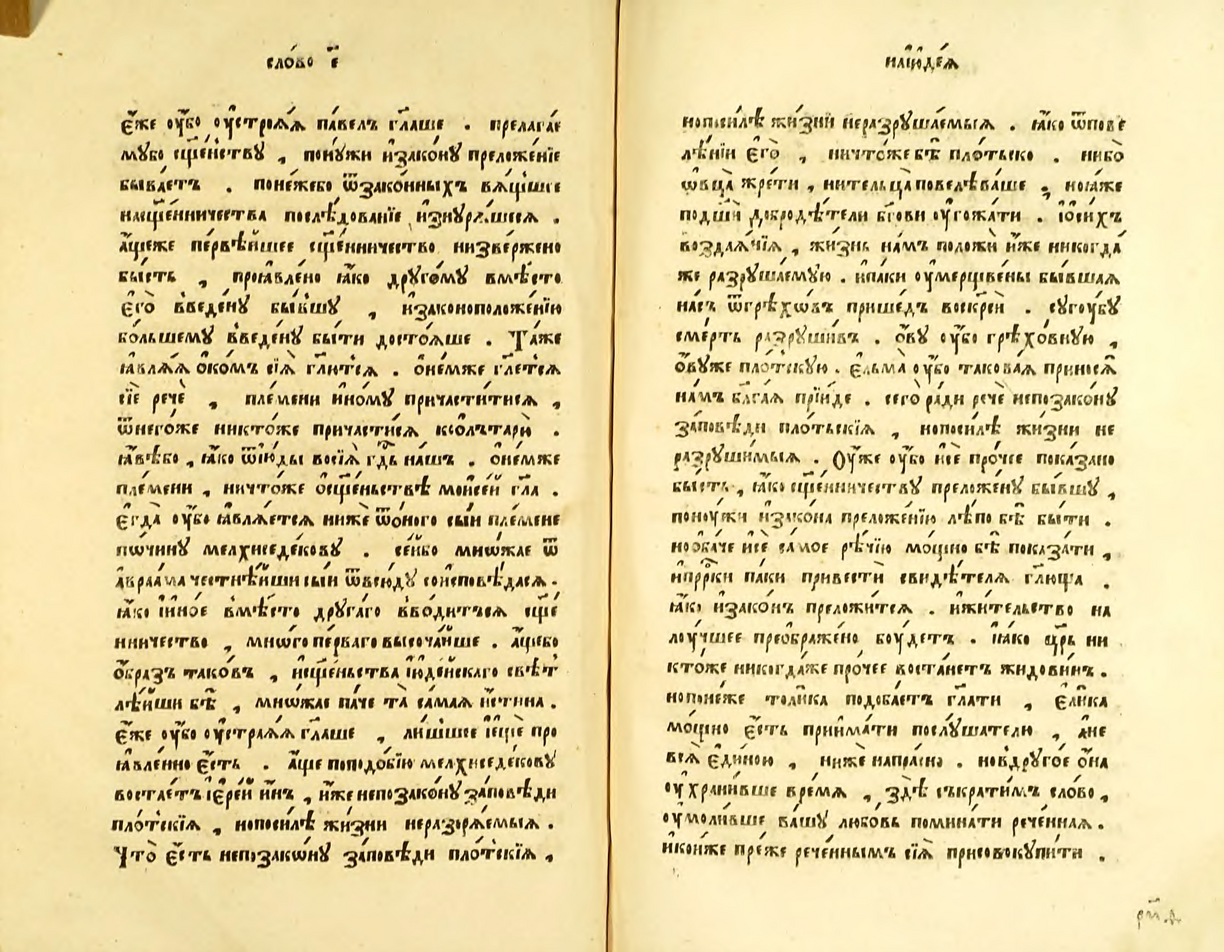 сло́во є҃
є҆́же ᲂу҆́бо ᲂу҆строѧ́ѧ па́велъ гл҃аше . прелага́є
мꙋбо сщ҃е́нствꙋ , понꙋ́жи и҆зако́нꙋ преложе́нїе
быва́етъ . поне́жебо ѿзако́нныхъ вѧ́щшїе
насщ҃е́нничества послѣ́дованїе и҆знꙋрѧ́шесѧ .
а҆́щеже первѣ́йшее сщ҃е́нничество низве́ржено
бы́сть , проѧвле́но ꙗ҆́ко дрꙋго́мꙋ вмѣ́сто
є҆го̀ введе́нꙋ бы́вшꙋ , и҆законоположе́нїю
бо́льшемꙋ введе́нꙋ бы́ти достоѧ́ше . Та́же
ꙗ҆влѧ́ѧ о҆́комъ сїѧ̀ гл҃ятсѧ . о҆не́мже гл҃етсѧ
сїѐ речѐ , пле́мени и҆но́мꙋ причасти́тисѧ ,
ѿнего́же никто́же причасти́сѧ ксолътарю̀ .
ꙗ҆́вѣбо , ꙗ҆́ко ѿїю́ды восїѧ̀ гдⷭ҇ь на́шъ . о҆не́мже
пле́мени , ничто́же о҆сщ҃е́ньствѣ моисе́й гл҃а .
є҆гда̀ ᲂу҆́бо ꙗ҆влѧ́етсѧ нижѐ ѿо́ного сы́и пле́мене
почи́нꙋ мелхиседе́ковꙋ . се́йбо мно́жае ѿ
а҆враа́ма честнѣ́йши сы́и ѿвсю́дꙋ соисповѣ́дасѧ .
ꙗ҆́ко и҆и́ное вмѣ́сто дрꙋга́го вво́дитъсѧ сщ҃е́
нничество , мно́гопе́рваго высоча́йше . а҆́щебо
ѻ҆́бразъ тако́въ , исщ҃е́ньства і҆юде́йскаго свѣт
лѣ́йши бѣ̀ , мно́жае па́че та̀ са́маѧ и҆́стина .
є҆́же ᲂу҆́бо ᲂу҆строѧ́ѧ гл҃аше , ли́шшее і҆ещѐ про
ꙗ҆вле́нно є҆́сть . а҆́ще поподо́бїю мелхиседе́ковꙋ
востае́тъ і҆ере́й и҆́нъ , и҆́же непозако́нꙋ за́повѣди
пло́тскїѧ , нопоси́лѣ жи́зни неразорѧ́емыѧ .
Что̀ є҆́сть непозако́нꙋ за́повѣди пло́тскїѧ ,
илїю́де́ѧ
нопоси́лѣ жи́знїи неразрꙋша́емыѧ . ꙗ҆́ко ѿпове
лѣ́нїи є҆го̀ , ничто́же бѣ̀ пло́тьско . нибо̀
ѻ҆вца̀ жре́ти , нительца̀ повелѣва́ше , ноꙗ҆́же
подш҃и добродѣ́тели бг҃ови ᲂу҆гожа́ти . і҆оси́хъ
воздаѧ́нїѧ , жи́знь на́мъ положѝ и҆́же никогда́
же разрꙋша́емꙋю . и҆па́ки ᲂу҆мерщвены̀ бы́вшаѧ
на́съ ѿгрѣ́хѡвъ прише́дъ воскрⷭ҇и . сꙋгꙋ́бꙋ
сме́рть разрꙋши́въ . о҆́вꙋ ᲂу҆́бо грѣхо́внꙋю ,
о҆́вꙋже пло́тскꙋю . є҆́льма ᲂу҆́бо такова́ѧ принесѧ̀
на́мъ бл҃га́ѧ прїи́де . сего̀ ра́ди речѐ непозако́нꙋ
за́повѣди пло́тьскїѧ , нопоси́лѣ жи́зни не
разрꙋши́мыѧ . Оу҆́же ᲂу҆́бо ис҃е про́чее пока́зано
бы́сть , ꙗ҆́ко сщ҃е́нничествꙋ преложе́нꙋ бы́вшꙋ ,
поноу́жи и҆зако́на преложе́нїю лѣ́по бѣ̀ бы́ти .
нооба́че ис҃е са́мое рѣ́чїю мо́щно бѣ̀ показа́ти ,
и҆прⷪ҇рки па́ки привестѝ свидѣ́телѧ гл҃юща .
ꙗ҆́ко и҆зако́нъ преложи́тсѧ . и҆жи́тельство на
лоу́чшее преображе́но боу́детъ . и҆ꙗ́ко цр҃ь ни
кто́же никогда́же про́чее воста́нетъ жидови́нъ .
нопоне́же толи́ка подоба́етъ гл҃ати , є҆ли́ка
мо́щно є҆́сть прiима́ти послꙋ́шателю , а҆́не
всѧ̀ є҆ди́ною , нижѐ напра́сно . новдрꙋго́е ѻ҆на̀
ᲂу҆храни́вше вре́мѧ , здѣ̀ съкрати́мъ сло́во ,
ᲂу҆моли́вше ва́шꙋ любо́вь помина́ти рече́ннаѧ .
и҆коиже пре́же рече́ннымъ сїѧ̀ присовокупи́ти .